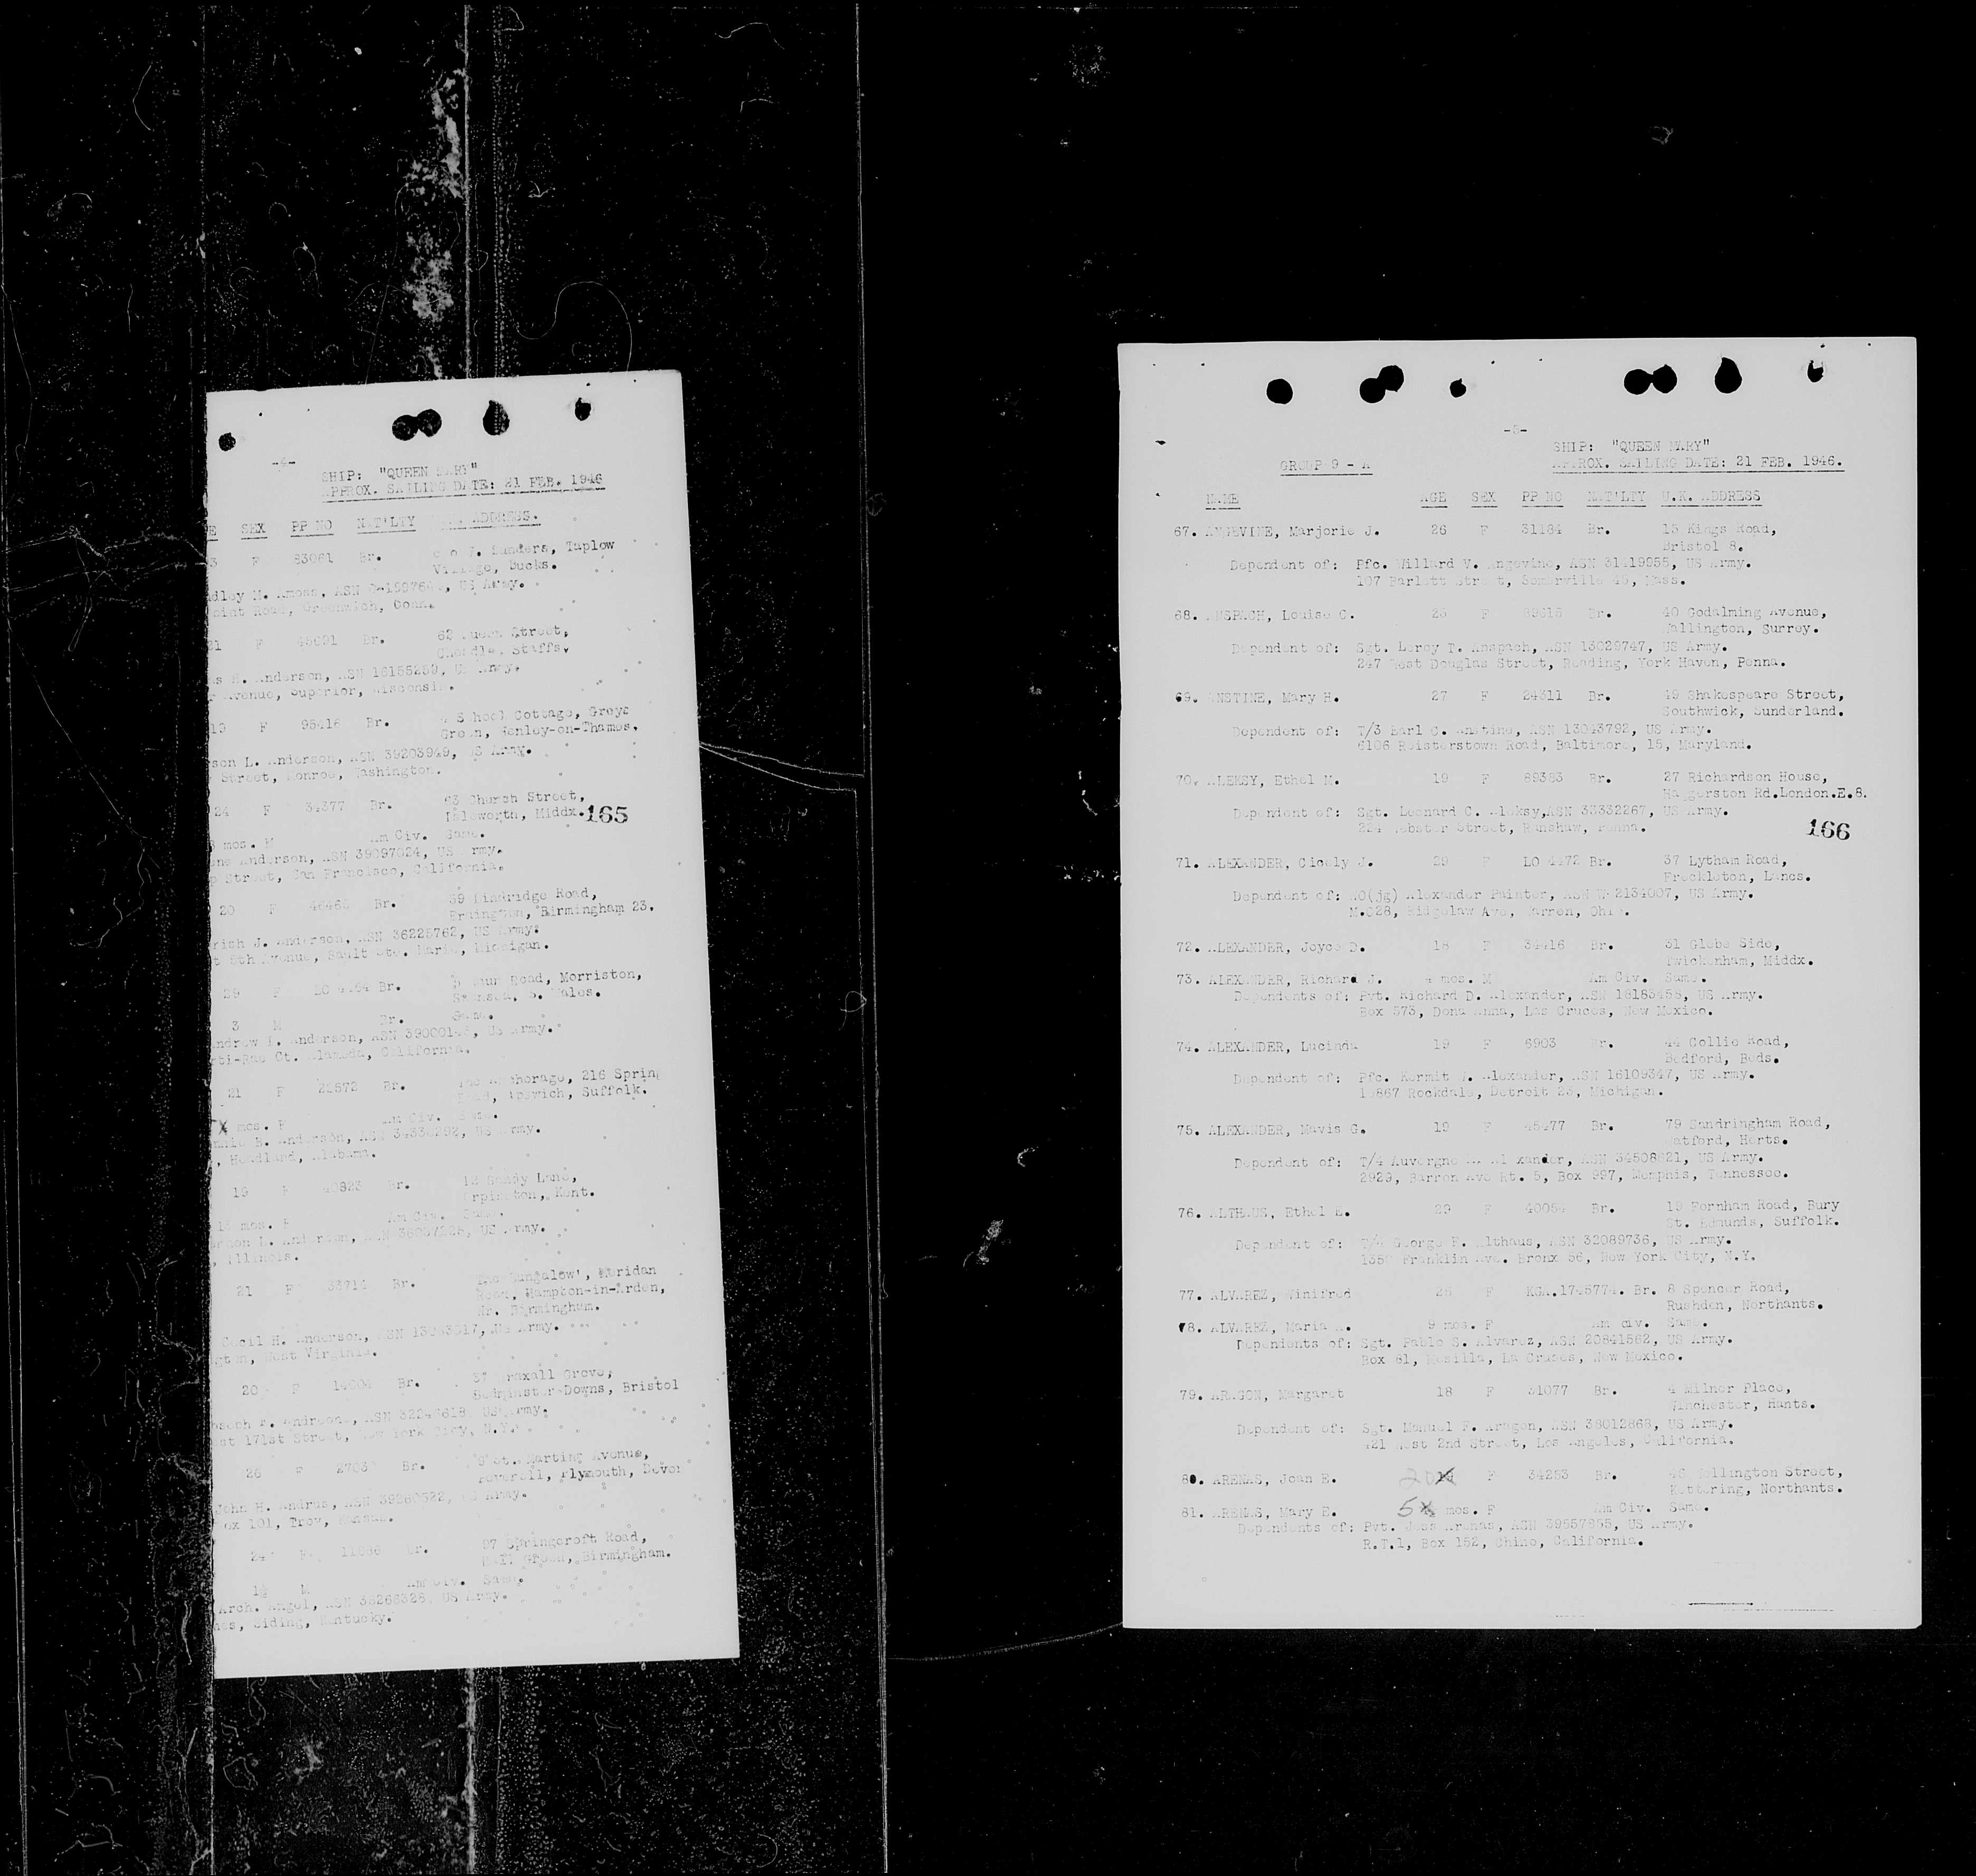 -4-
SHIP: "QUEEN MARY"
APPROX. SAILING DATE: 21 FEB. 1946
E SEX PP NO NAT'LTY ADDRESS.
3 F 83061 Br. Sanders, Taplow
Village, Bucks.
dley M. Amoss, ASN US Army.
oint Road, Greenwich, Conn.
21 F Br. 62 Queen Street,
Cheadle, Staffs.
as H. Anderson, ASN 16155259, US Army.
r Avenue, Superior, Wisconsin.
19 F 95416 Br. School Cottage, Greys
Green, Henley-on-Thames.
rson L. Anderson, ASN 39203949, US Army.
Street, Monroe, Washington.
24 F 34377 Br. 63 Church Street,
Isleworth, Middx.
165
mos. M Am Civ. Same.
ene Anderson, ASN 39097024, US Army.
Street, San Francisco, California.
20 F Br. 39 Lindridge Road,
Erdington, Birmingham 23.
rich J. Anderson, ASN 36225762, US Army.
t 8th Avenue, Sault Ste. Marie, Michigan.
29 F LO 4464 Br. Road, Morriston,
Swansea, S. Wales.
3 M Br. Same.
Andrew L. Anderson, ASN US Army.
Ct. Alameda, California.
21 F 22572 Br. The Anchorage, 216 Spring
Road, Ipswich, Suffolk.
mos. F Am Civ. Same.
nnie B. Anderson, ASN US Army.
, Headland, Alabama.
19 F Br. 12 Sandy Lane,
Orpington, Kent.
mos. F Am Civ. Same.
L. Anderson, ASN US Army.
, Illinois.
21 F Br. The Bungalow', Meridan
Road, Hampton-in-Arden,
Nr. Birmingham.
Cecil H. Anderson, ASN US Army.
gton, West Virginia.
20 F Br. 37 Wraxall Grove,
Bedminster Downs, Bristol
oseph ASN US Army.
st 171st Street, New York City, N.Y.
26 F Br. Avenue,
Peverell, Plymouth, Devon
John H. Andrus, ASN 39260522, US Army.
ox 101, Troy, Kansas.
24 F Br. 97 Springcroft Road,
Hall Green, Birmingham.
M Am Civ. Same.
Arch. Angel, ASN 35266328, US Army.
Siding, Kentucky.
-5-
SHIP: "QUEEN MARY"
GROUP 9 - A APPROX. SAILING DATE: 21 FEB. 1946.
NAME AGE SEX PP NO NAT'LTY U.K. ADDRESS
67. ANGEVINE, Marjorie J. 26 F 31184 Br. 15 Kings Road,
Bristol 8.
Dependent of: Pfc. Willard V. Angevine, ASN 31419955, US Army.
107 Barlett Street, Somerville 45, Mass.
68. ANSPACH, Louise C. 23 F Br. 40 Godalming Avenue,
Wallington, Surrey.
Dependent of: Sgt. Leroy T. Anspach, ASN 13029747, US Army.
247 West Douglas Street, Reading, York Haven, Penna.
69. ANSTINE, Mary H. 27 F 24311 Br. 49 Shakespeare Street,
Southwick, Sunderland.
Dependent of: T/3 Earl C. Anstine, ASN 13043792, US Army.
6106 Reisterstown Road, Baltimore, 15, Maryland.
70. ALEKSY, Ethel M. 19 F 89383 Br. 27 Richardson House,
Haggerston Rd.London.E.8.
Dependent of: Sgt. Leonard C. Aleksy,ASN 33332267, US Army.
224 Webster Street, Ranshaw, Penna.
166
71. ALEXANDER, Cicely J. 29 F LO 4472 Br. 37 Lytham Road,
Freckleton, Lancs.
Dependent of: WO(jg) Alexander Painter, ASN W-2134007, US Army.
M.028, Ridgelaw Ave, Warren, Ohio.
72. ALEXANDER, Joyce D. 18 F 34416 Br. 31 Glebe Side,
Twickenham, Middx.
73. ALEXANDER, Richard J. 4 mos. M Am Civ. Same.
Dependents of: Pvt. Richard D. Alexander, ASN 18183455, US Army.
Box 573, Dona Anna, Las Cruces, New Mexico.
74. ALEXANDER, Lucinda 19 F 6903 Br. 44 Collie Road,
Bedford, Beds.
Dependent of: Pfc. Kermit W. Alexander, ASN 16109347, US Army.
Rockdale, Detroit 23, Michigan.
75. ALEXANDER, Mavis G. 19 F 45477 Br. 79 Sandringham Road,
Watford, Herts.
Dependent of: T/4 Auvergne Alexander, ASN US Army.
2929, Barron Ave Rt. 5, Box 997, Memphis, Tennessee.
76. ALTHAUS, Ethel E. 29 F 40054 Br. 19 Fornham Road, Bury
St. Edmunds, Suffolk.
Dependent of: T/4 George F. Althaus, ASN 32089736, US Army.
Franklin Ave. Bronx 56, New York City, N.Y.
77. ALVAREZ, Winifred 26 F KGA.1745774. Br. 8 Spencer Road,
Rushden, Northants.
78. ALVAREZ, Maria A. 9 mos. F Am Civ. Same.
Dependents of: Sgt. Pablo S. Alvarez, ASN 20841562, US Army.
Box 61, Mesilla, La Cruses, New Mexico.
79. ARAGON, Margaret 18 F 31077 Br. 4 Milner Place,
Winchester, Hants.
Dependent of: Sgt. Manuel F. Aragon, ASN 38012868, US Army.
421 West 2nd Street, Los Angeles, California.
80. ARENAS, Joan E. 20 F 34283 Br. 46 Wellington Street,
Kettering, Northants.
81. ARENAS, Mary E. 5 mos. F Am Civ. Same.
Dependents of: Pvt. Jess Arenas, ASN 39557855, US Army.
R.T.1, Box 152, Chino, California.